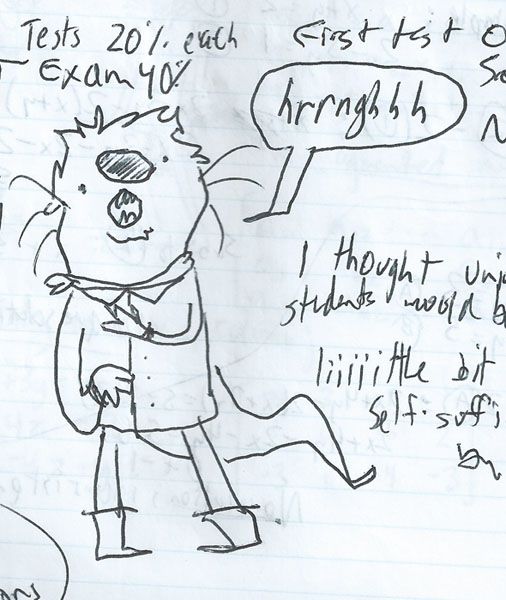 Tests 20% each
Exam 40%
First test
hrrnghhh
I thought
students would
liiiiittle bit
self-suffi